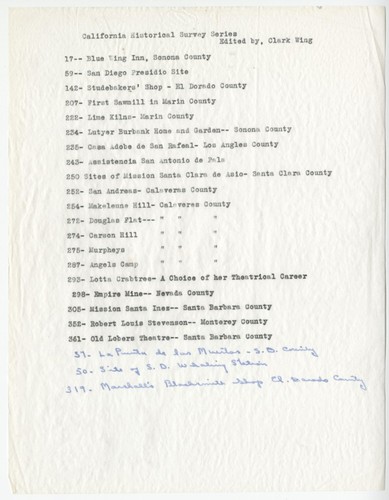 California Historical Survey Series
Edited by, Clark Wing
17-- Blue Wing Inn, Sonoma County
59-- San Diego Presidio Site
142- Studebakers' Shop - El Dorado County
207- First Sawmill in Marin County
222- Lime Kilns- Marin County
234- Lutyer Burbank Home and Garden-- Sonoma County
235- Casa Adobe de San Rafael- Los Angles County
243- Assistencia San Antonio de Pala
250 Sites of Mission Santa Clara de Asio- Santa Clara County
252- San Andreas- Calaveras County
254- Mokelemne Hill- Calaveras County
272- Douglas Flat--- " " "
274- Carson Hill " " "
275- Murpheys " " "
287- Angels Camp " " "
293- Lotta Crabtree- A Choice of her Theatrical Career
298- Empire Mine-- Nevada County
305- Mission Santa Ines-- Santa Barbara County
352- Robert Louis Stevenson-- Monterey County
361- Old Lobero Theatre-- Santa Barbara County
57- La Punta de los Muertos - S.D. County
50- Site of S.D. Whaling Station
319- Marshall's Blacksmith Shop El Dorado County